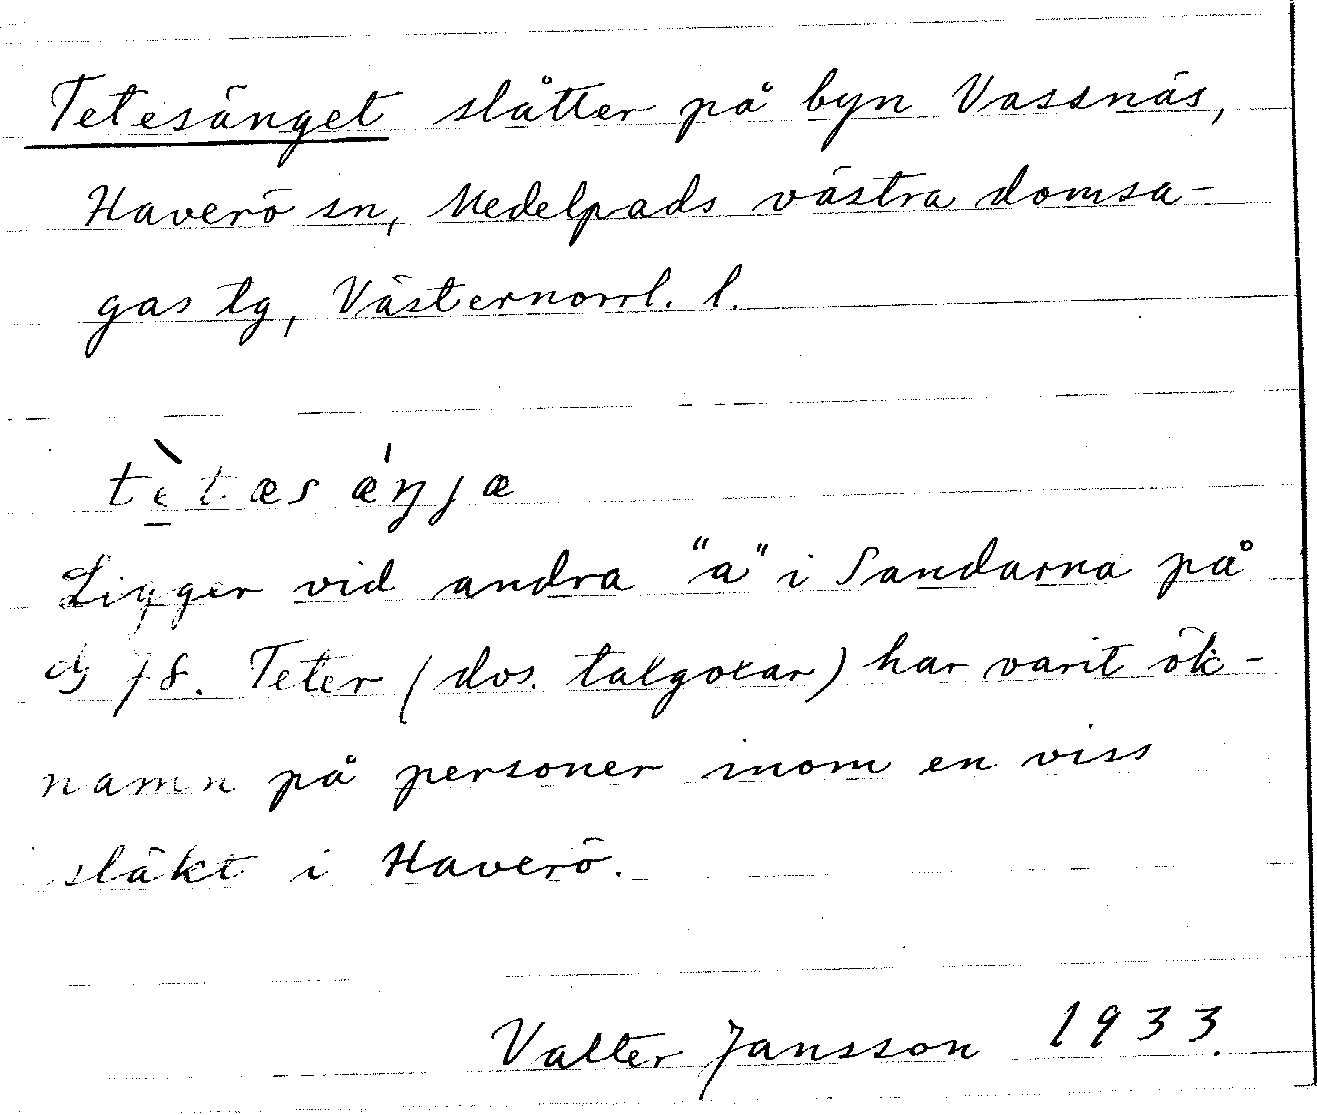 Tetesänget slåtter på byn Vassnäs,
Haverö sn, Medelpads västra domsa-
gas tg, Västernorrl. l.
tètæsæ´ŋjæ
Ligger vid andra "a" i Sandarna på
78. Teter (dvs. talgoxar) har varit ök-
namn på personer inom en viss
släkt i Haverö.
Valter Jansson 1933.